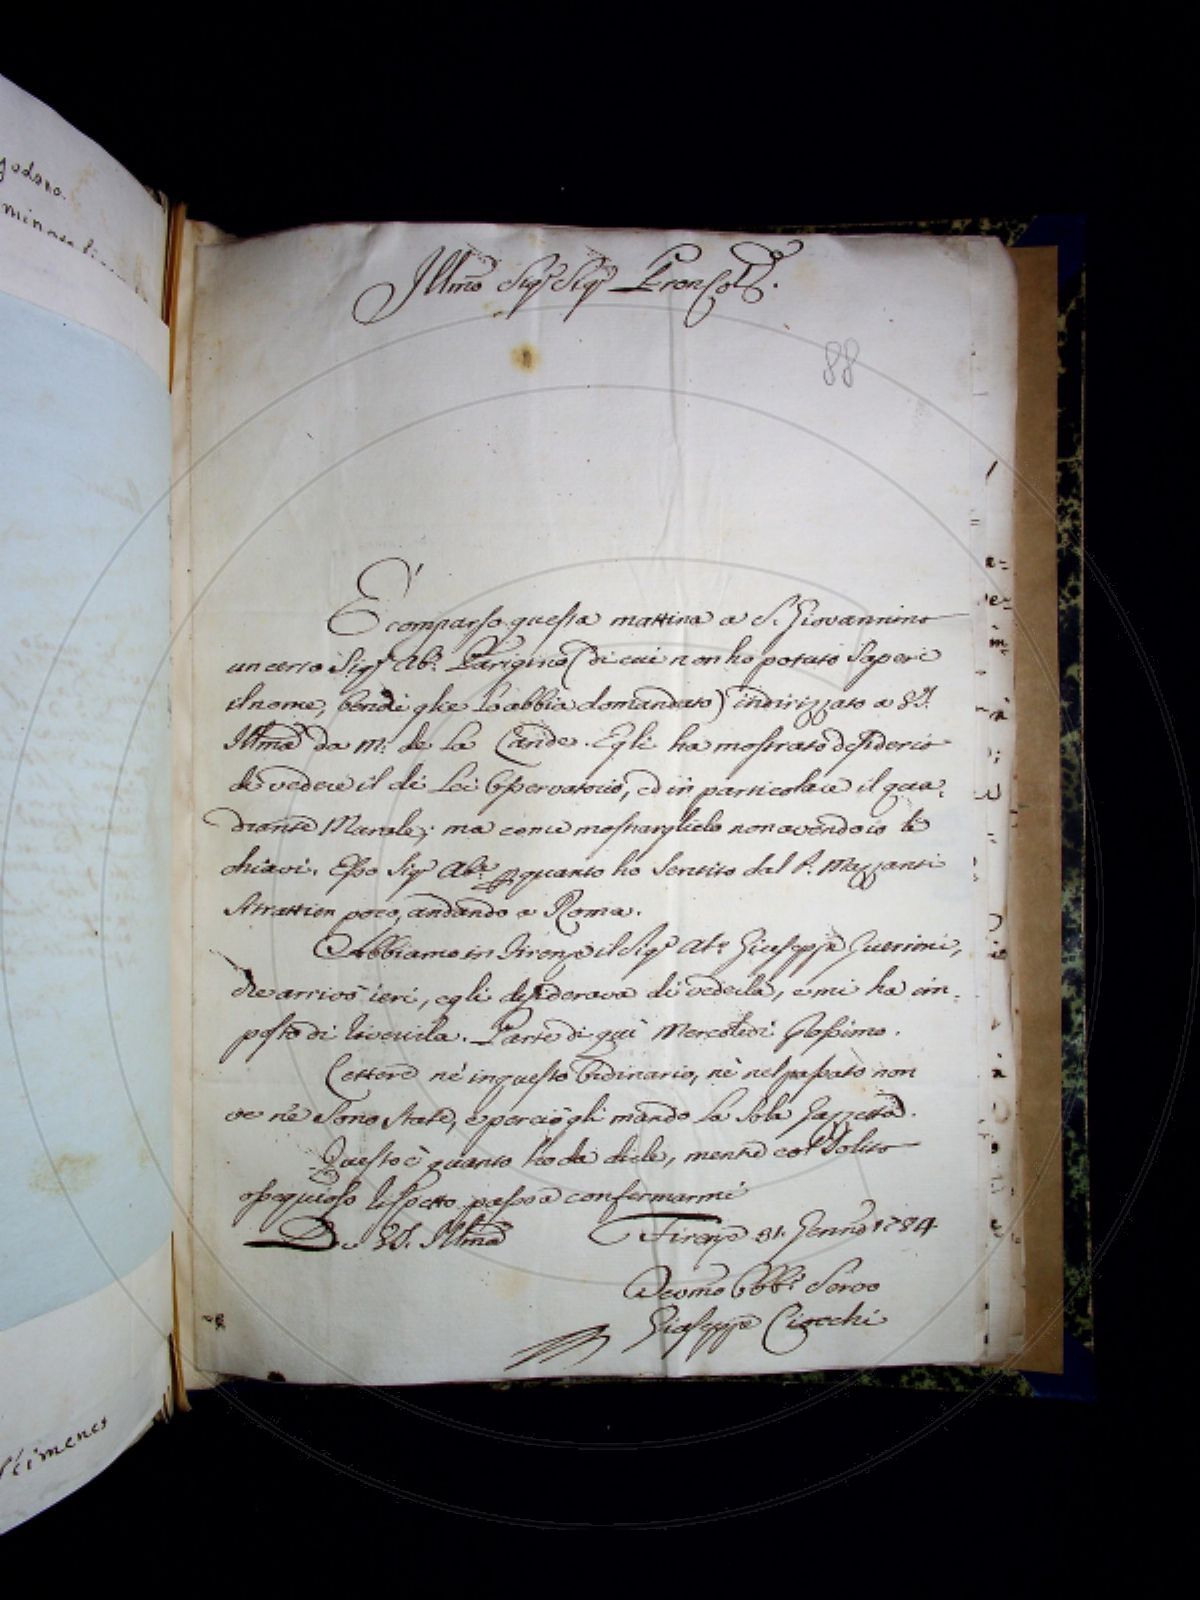 godano.
minass
Ximenes
Illmo Sigr Sigr Pron Colmo.
88
È comparso questa mattina a S. Giovannino
un certo Sigr Abe. Parigino (di cui non ho potuto Sapere
il nome, bendi glie Lo abbia domandato) indirizzato a VS.
Illma da Mr. de La Lande. Egli ha mostrato desiderio
di vedere il di Lei Osservatorio, ed in particolare il qua=
drante Murale; ma come mostrarglielo non avendo io le
chiavi. Esso Sigr Abe. per quanto ho Sentito dal P. Mazzanti
Strattien poco, andando a Roma.
Abbiamo in Firenze il Sigr Abe Giuseppe Guerini,
che arrivò ieri, egli desiderava di vederla, e mi ha im=
posto di riverirla. Parte di quì Mercoledì Prossimo.
Lettere nè in questo Ordinario, nè nel passato non
ve n'è Sono State, e perciò gli mando La Sola Gazzetta.
Questo è quanto ho da dirle, mentre col Solito
ossequioso rispetto passo a confermarmi
Di VS. Illma
Firenze 31. Gennro 1784
Devmo Obbl Servo
Giuseppe Ciocchi